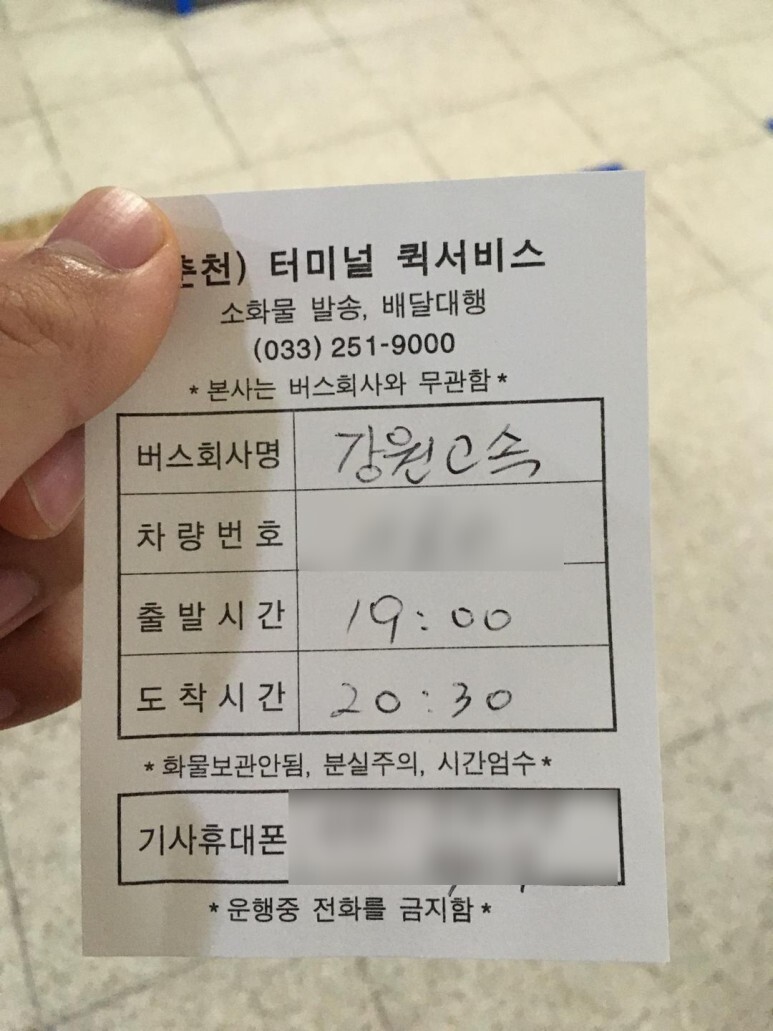 춘천) 터미널 퀵서비스
소화물 발송, 배달대행
(033) 251-9000
*본사는 버스회사와 무관함*
버스회사명 강원고속
차량번호
출발시간 19:00
도착시간 20:30
*화물보관안됨, 분실주의, 시간엄수*
기사휴대폰
*운행중 전화를 금지함*